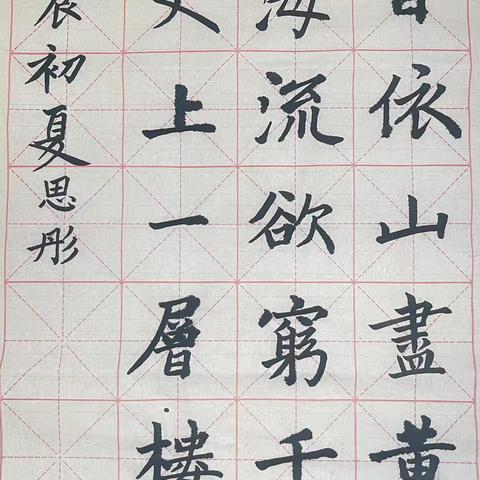 日依山盡黄
海流欲窮千
更上一層樓
辰初夏思彤